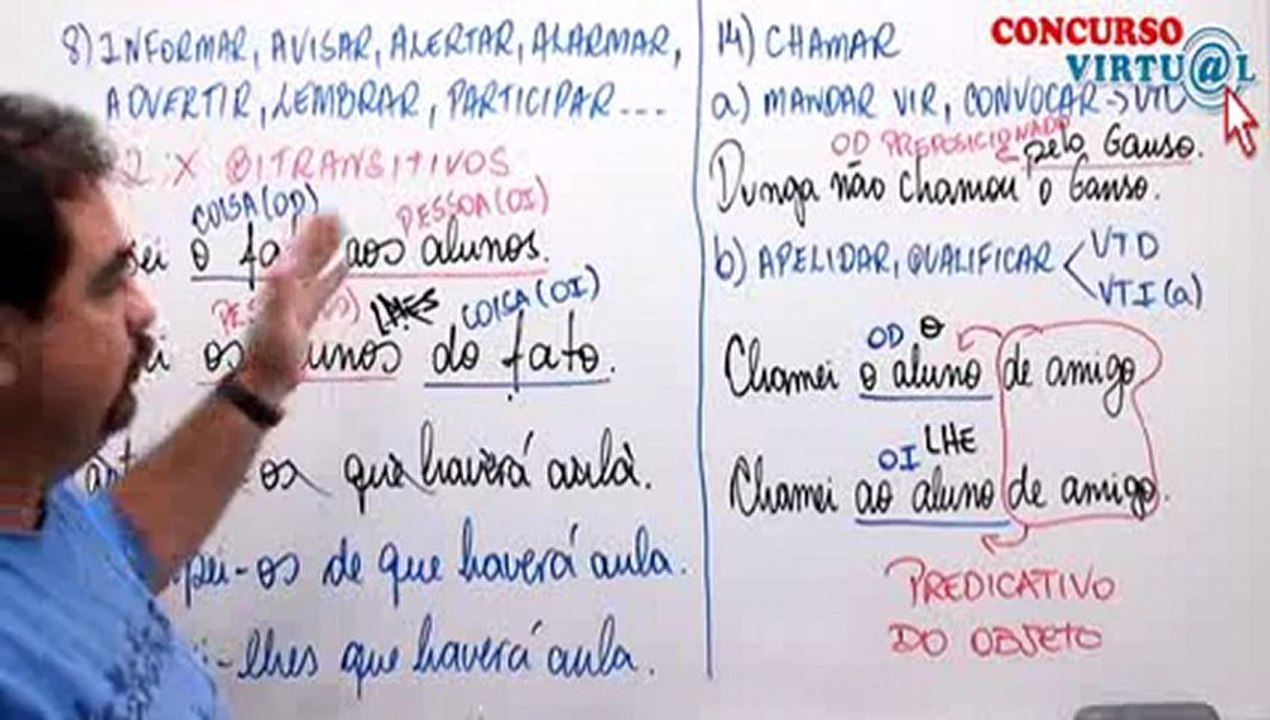 8) INFORMAR, AVISAR, ALERTAR, ALARMAR,
ADVERTIR, LEMBRAR, PARTICIPAR...
BITRANSITIVOS
COISA (OD) PESSOA (OI)
ei o aos alunos.
LHES COISA (OI)
i os unos do fato.
os que haverá aula.
pei-os de que haverá aula.
i-lhes que haverá aula.
14) CHAMAR
CONCURSO
VIRTU@L
a) MANDAR VIR, CONVOCAR → VTD
OD PREPOSICIONADO
pelo Ganso.
Dunga não chamou o Ganso.
b) APELIDAR, QUALIFICAR < VTD
VTI (a)
OD O
Chamei o aluno de amigo
OI LHE
Chamei ao aluno de amigo.
PREDICATIVO
DO OBJETO